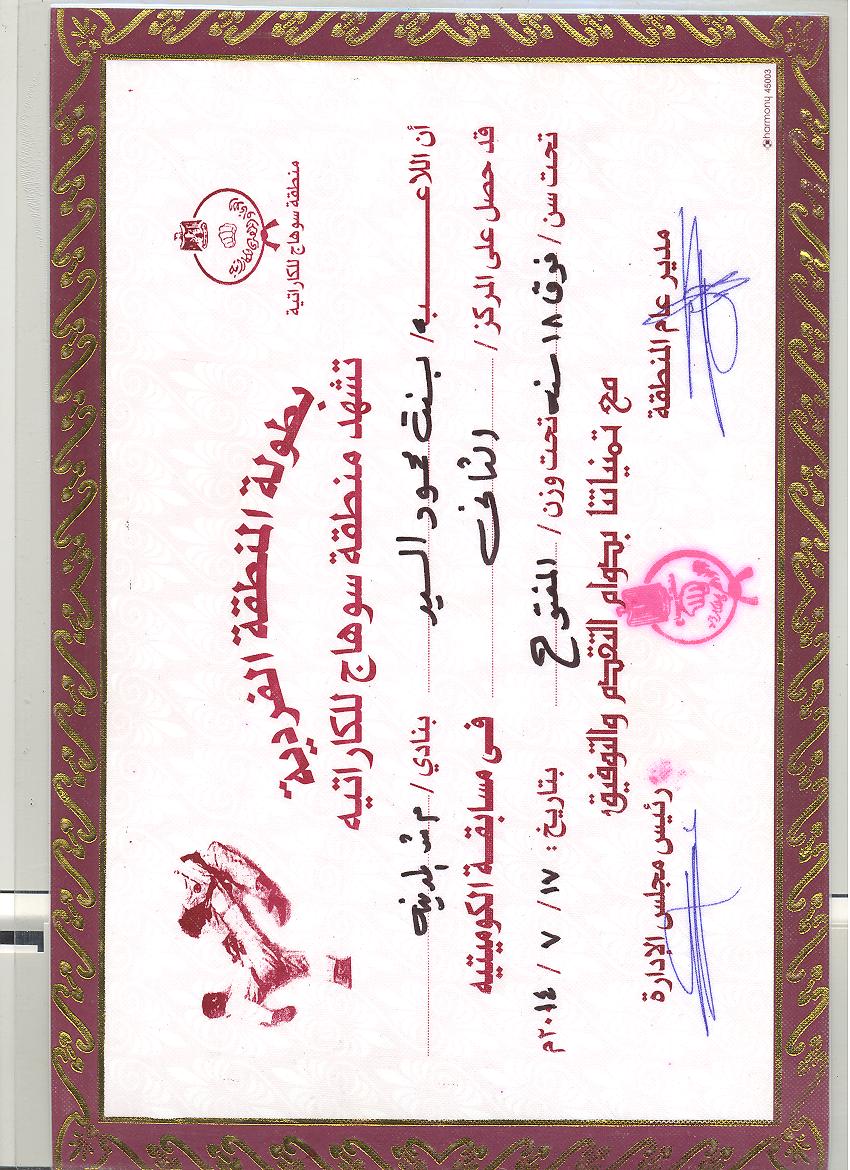 منطقة سوهاج للكاراتية
بطولة المنطقة الفردية
تشهد منطقة سوهاج للكاراتيه
أن اللاعبـــــه / بنت محمود السيد بنادي / م.ش المدينه
قد حصل على المركز / الثانى فى مسابقة الكوميتيه
تحت سن / فوق ١٨ سنه تحت وزن / المفتوح بتاريخ : ١٧ / ٧ / ٢٠١٤م
مع تمنياتنا بدوام التقدم والتوفيق
مدير عام المنطقة رئيس مجلس الإدارة
harmony 45003